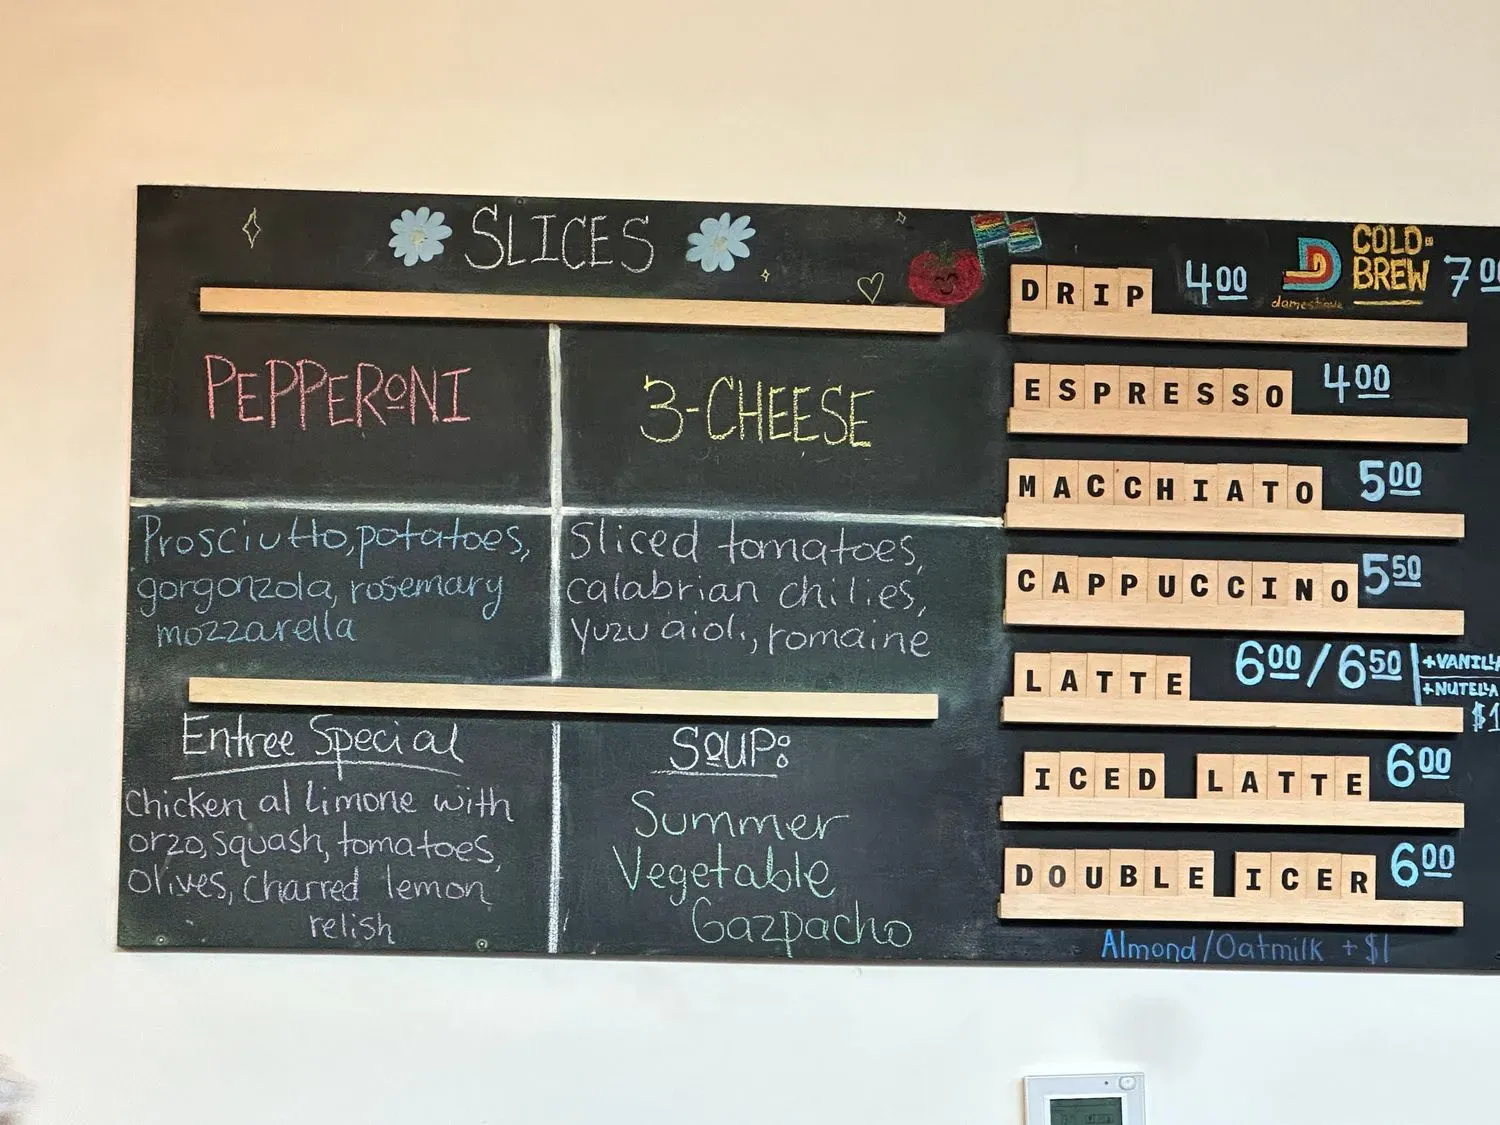 SLICES
PEPPERONI
3-CHEESE
Prosciutto, potatoes,
gorgonzola, rosemary
mozzarella
Sliced tomatoes,
calabrian chilies,
yuzu aioli, romaine
Entree Special
Chicken al limone with
orzo, squash, tomatoes,
olives, charred lemon
relish
SOUP:
Summer
Vegetable
Gazpacho
DRIP 4.00
domestique
COLD-
BREW 7.00
ESPRESSO 4.00
MACCHIATO 5.00
CAPPUCCINO 5.50
LATTE 6.00/6.50
+VANILLA
+NUTELLA
$1
ICED LATTE 6.00
DOUBLE ICER 6.00
Almond/Oatmilk +$1